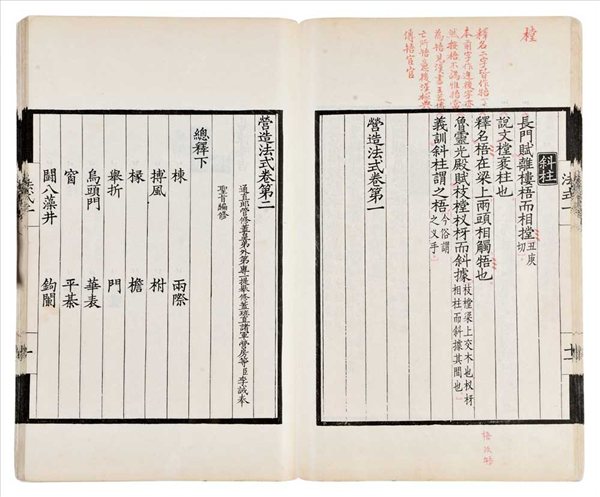 樘
法式一
斜柱
長門賦離樓梧而相撐丑庚切
說文樘衺柱也
釋名牾在梁上兩頭相觸牾也
魯靈光殿賦枝樘杈枒而斜據枝樘梁上交木也杈枒相柱而斜據其間也
義訓斜柱謂之梧今俗謂之叉手
營造法式卷第一
十一
營造法式卷第二
通直郎管修蓋皇弟外第專一提舉修蓋班直諸軍營房等臣李誡奉
聖旨編修
總釋下
棟 兩際
搏風 柎
椽 檐
舉折 門
烏頭門 華表
窗 平棊
鬭八藻井 鉤闌